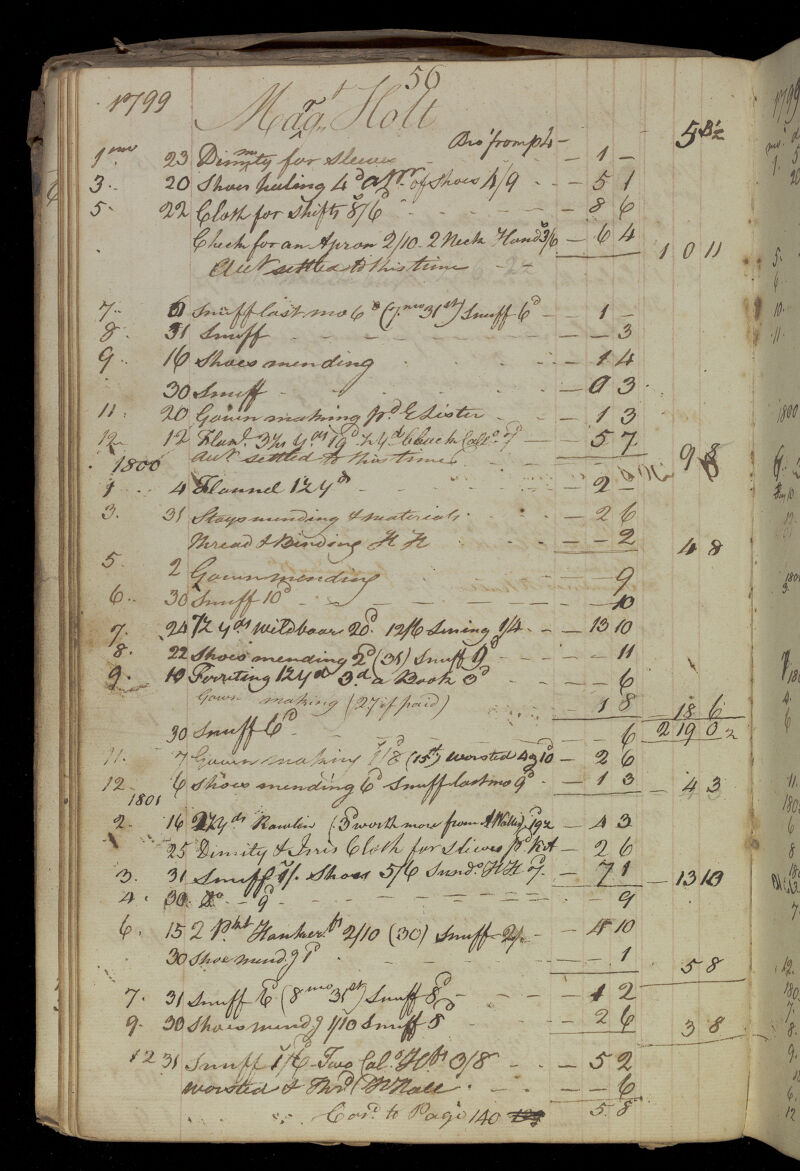 56
1799 Margt Holt
Bro from p 4 — 5
1mo 23 Dimity for sleeves — 1 —
3 20 Shoes heeling 4d a pr of Shoes 4/9 — 5 1
5 22 Cloth for shifts 8/6d — 8 6
Check for an Apron 2/10 2 Neck Hands 3/6 — 6 4 1 0 11
Acct settled to this time
7 6 Snuff last mo 6d (7mo 31st) Snuff 6d — 1 —
8 31 Snuff — — 3
9 16 Shoes mending — 1 4
30 Snuff — 0 3
11 20 Gown making pd E Lister — 1 3
12 12 Flanl 3 yds 19d yd Check — 5 7
Acct settled to this time 9 8
1800
1 4 Flannel 1½ yds — 2 —
3 31 Stays mending & materials — 2 6
Thread & Binding H H — — 2 4 8
5 2 Gown mending 9
6 30 Snuff 10d — 10
7 24 7½ yds Wildboar 20d 12/6 Lining 1/4 — 13 10
8 22 Shoes mending 2d (31) Snuff 9d — 11
9 10 Ferreting 1½ yd 3d a Book 3d — 6
Gown making (27 if paid) 1 8 18 6
30 Snuff 6d 6 2 19 0 2
11 7 Gown making 1/8 (15th) worsted 10d — 2 6
12 6 Shoes mending 6d Snuff last mo 9d — 1 3 4 3
1801
2 16 yds Rawlin (5d worth more from — 4 3
25 Dimity & Iris Cloth for Sleeves pd — 2 6
3 31 Snuff 1/. Shoes 5/6 Sunds H H — 7 1 — 13 10
4 30 Do 9d 9
6 15 2 Pkt Hankerfs 2/10 (30) Snuff 2/. — 4 10
30 Shoe mendg 1d — 1 5 8
7 31 Snuff 6d (8mo 31st) Snuff 8d — 1 2
9 30 Shoes mendg 1/10 Snuff 8d — 2 6 3 8
12 31 Snuff 1/6d Two Cals Hfs 3/8 — 5 2
worsted & Thrd — 6
Card to Page 140 5 8